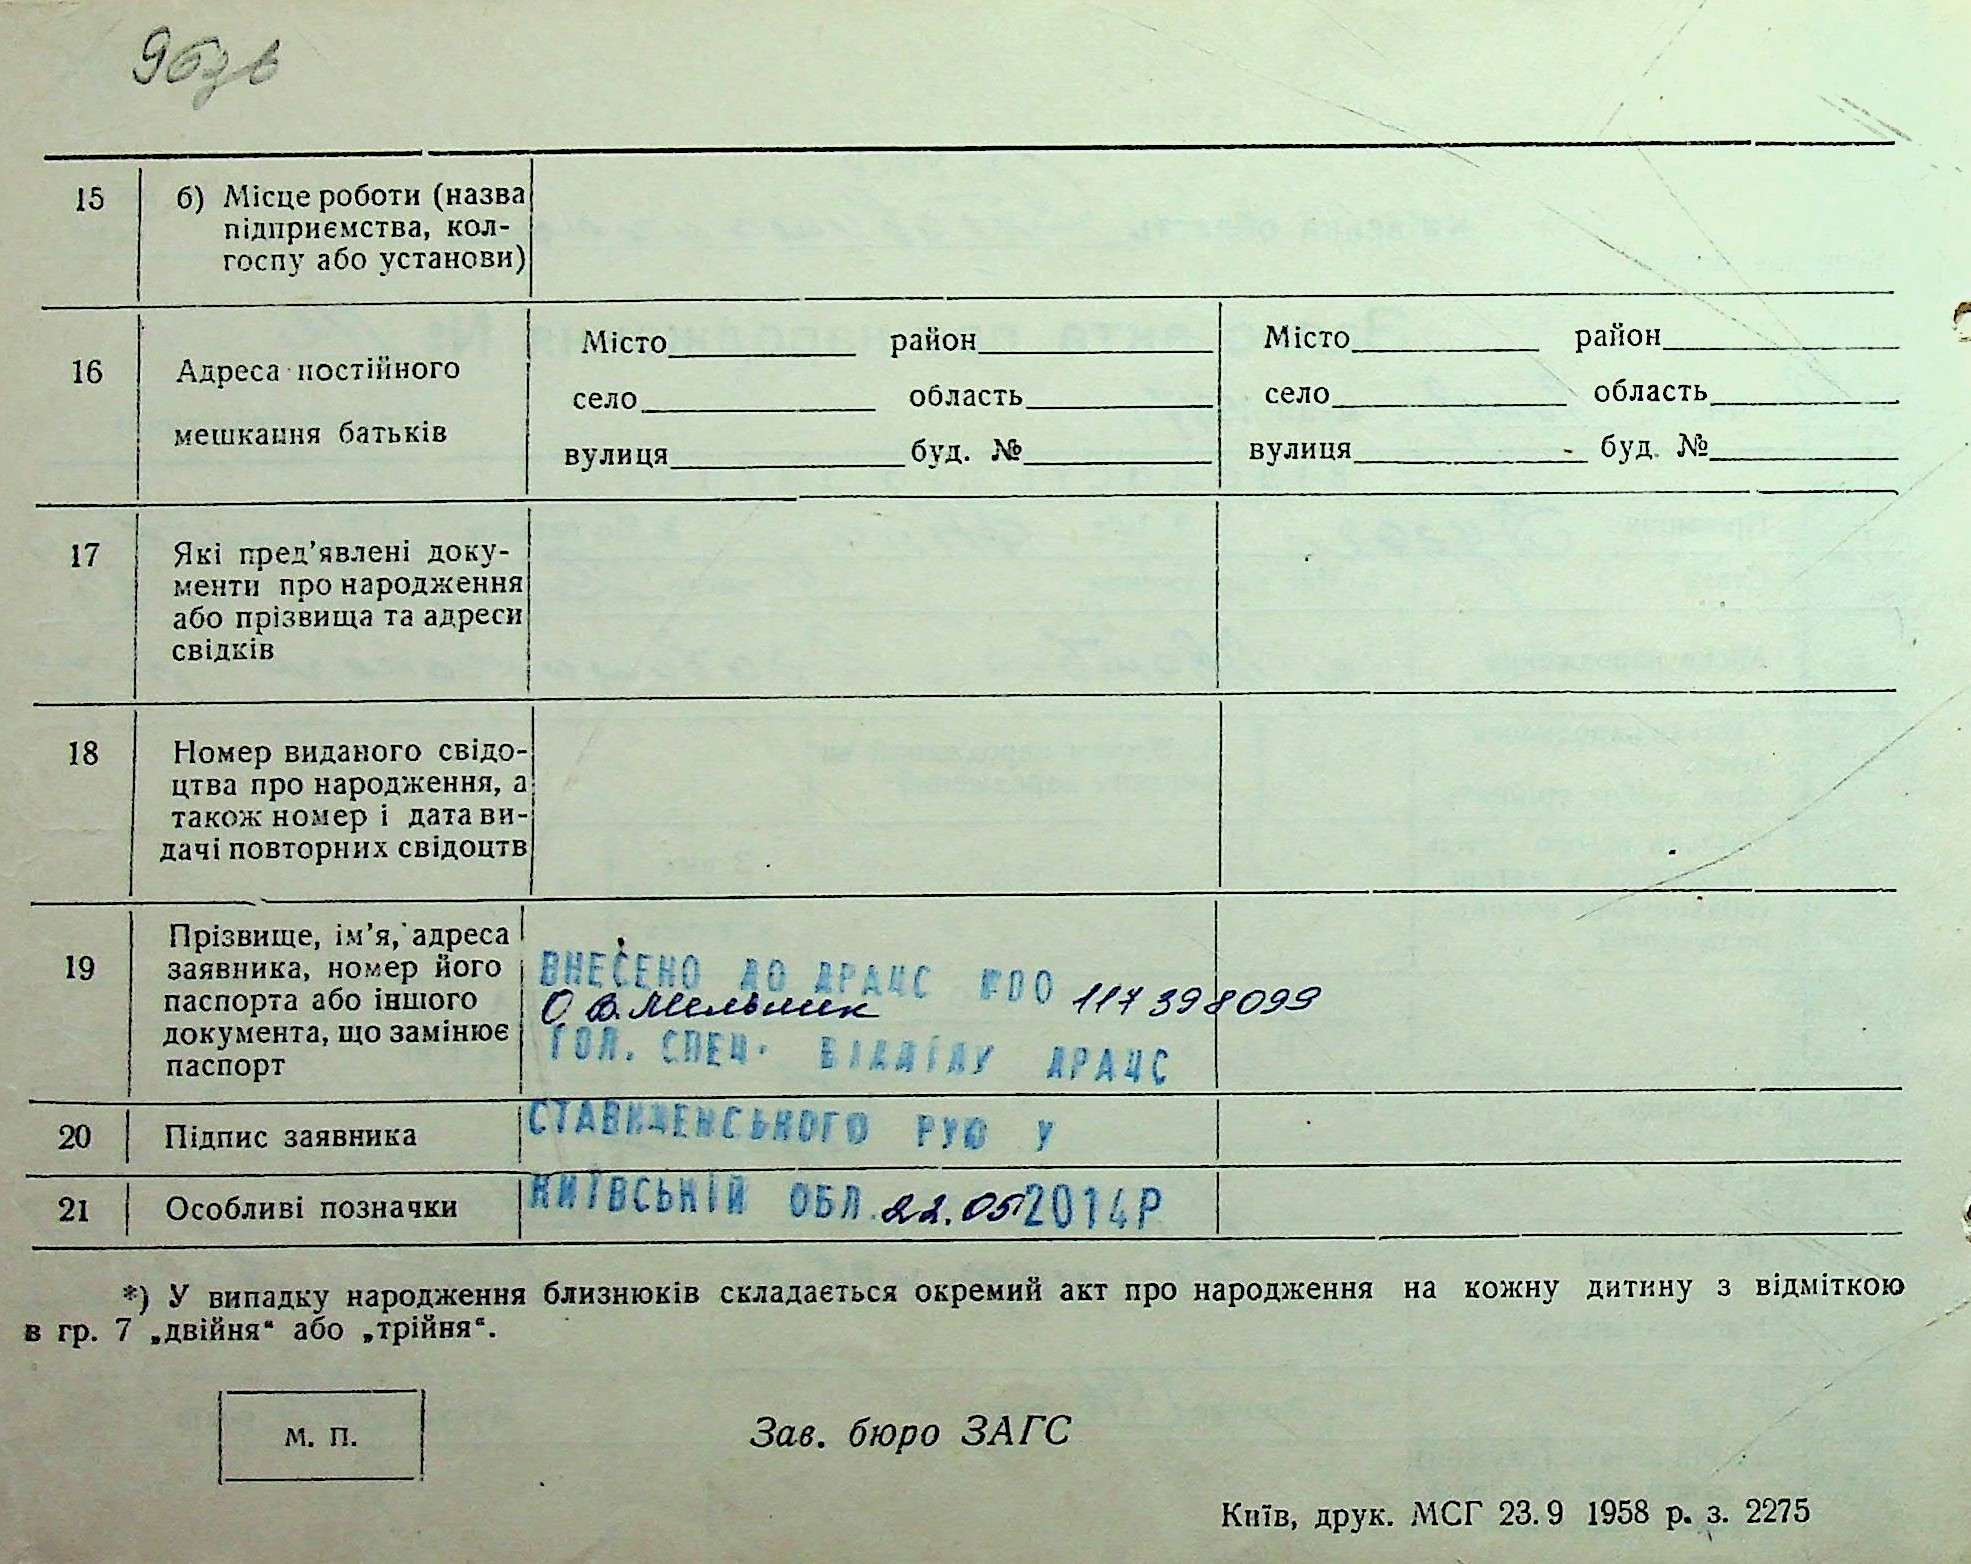 15 б) Місце роботи (назва
підприємства, кол-
госпу або установи)
16 Адреса постійного
мешкання батьків
Місто район
село область
вулиця буд. №
Місто район
село область
вулиця буд. №
17 Які пред’явлені доку-
менти про народження
або прізвища та адреси
свідків
18 Номер виданого свідо-
цтва про народження, а
також номер і дата ви-
дачі повторних свідоцтв
19 Прізвище, ім’я, адреса
заявника, номер його
паспорта або іншого
документа, що замінює
паспорт
ВНЕСЕНО ДО ДРАЦС 00117398099
О В. Мельник
ГОЛ. СПЕЦ. ВІДДІЛУ ДРАЦС
20 Підпис заявника
СТАВИЩЕНСЬКОГО РУЮ У
21 Особливі позначки
КИЇВСЬКІЙ ОБЛ. 22.05 2014Р
*) У випадку народження близнюків складається окремий акт про народження на кожну дитину з відміткою
в гр. 7 „двійня“ або „трійня“.
М. П.
Зав. бюро ЗАГС
Київ, друк. МСГ 23.9 1958 р. з. 2275